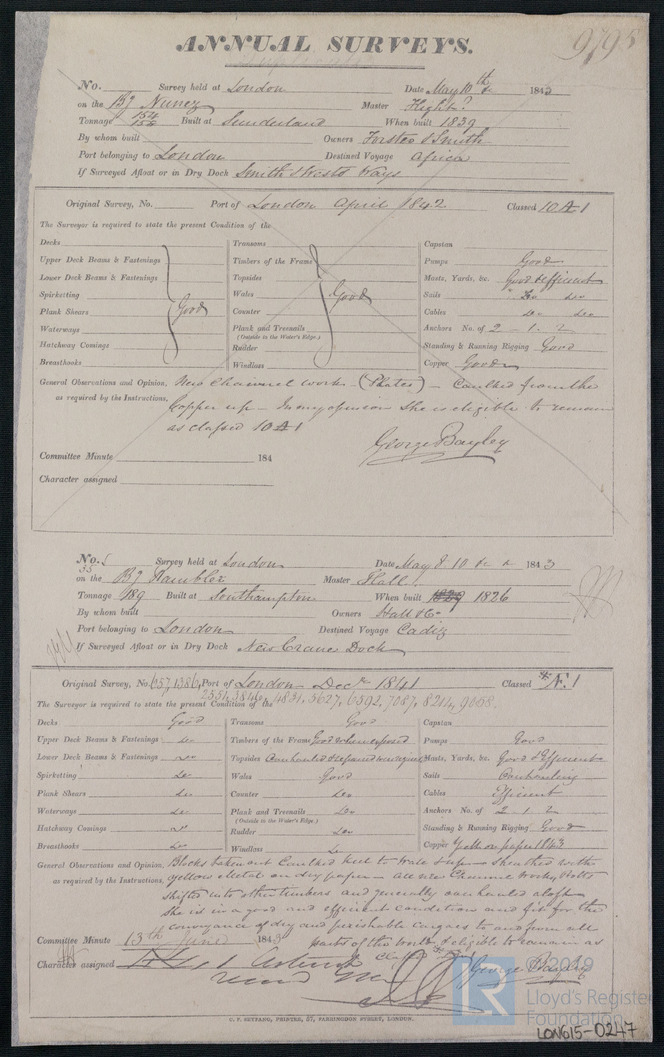 ANNUAL SURVEYS.
No. Survey held at London Date May 10th 1843
on the Bg Nunez Master
Tonnage 154 Built at Sunderland When built 1839
By whom built Owners Forster & Smith
Port belonging to London Destined Voyage Africa
If Surveyed Afloat or in Dry Dock Smith Ways
Original Survey, No. Port of London April 1842 Classed 10 A 1
The Surveyor is required to state the present Condition of the
Decks
Upper Deck Beams & Fastenings
Lower Deck Beams & Fastenings
Spirketting
Plank Shears
Waterways
Hatchway Comings
Breasthooks
Good
Transoms
Timbers of the Frame
Topsides
Wales
Counter
Plank and Treenails
(Outside in the Water's Edge.)
Rudder
Windlass
Good
Capstan
Pumps Good
Masts, Yards, &c. Good & efficient
Sails Do Do
Cables Do Do
Anchors No. of 2 - 1 - 2
Standing & Running Rigging Good
Copper Good
General Observations and Opinion, New Channel work (Plates) - Caulked from the
as required by the Instructions. Copper up - In my opinion She is eligible to remain
as classed 10 A 1
George Bayley
Committee Minute 184
Character assigned
No. 55 Survey held at London Date May 8 10 1843
on the Bg Rambler Master Hall
Tonnage 189 Built at Southampton When built 1826
By whom built Owners Hall & Co
Port belonging to London Destined Voyage Cadiz
If Surveyed Afloat or in Dry Dock New Crane Dock
Original Survey, No. 657, 1386, Port of London Decr 1841 Classed Æ 1
2554, 3846, 4831, 5627, 6592, 7087, 8214, 9058.
The Surveyor is required to state the present Condition of the
Decks Good
Upper Deck Beams & Fastenings Do
Lower Deck Beams & Fastenings Do
Spirketting Do
Plank Shears Do
Waterways Do
Hatchway Comings Do
Breasthooks Do
Transoms Good
Timbers of the Frame Good where exposed
Topsides Overhauled & repaired where required
Wales Good
Counter Do
Plank and Treenails Do
(Outside in the Water's Edge.)
Rudder Do
Windlass Do
Capstan
Pumps Good
Masts, Yards, &c. Good & Efficient
Sails Overhauling
Cables Efficient
Anchors No. of 2 - 1 - 2
Standing & Running Rigging Good
Copper Yellow 1843
General Observations and Opinion, Blocks taken out Caulked keel to Wale & up - Sheathed with
as required by the Instructions. yellow Metal on dry paper - all new Channel Works, Bolts
shifted into other timbers and generally overhauled aloft
She is in a good and efficient condition and fit for the
conveyance of dry and perishable cargoes to and from all
Committee Minute 13th June 1843 parts of the world & eligible to remain as
Character assigned Class
George Bayley
C. F. SEYFANG, PRINTER, 57, FARRINGDON STREET, LONDON.
© 2019
LR
Lloyd's Register
Foundation
LON615-0247